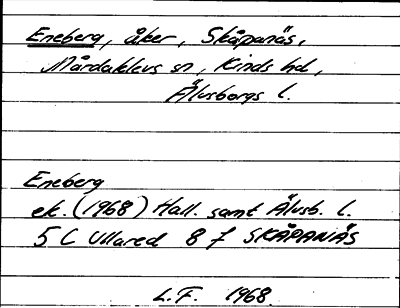 Eneberg, åker, Skåpanäs,
Mårdaklevs sn, Kinds hd,
Älvsborgs l.
Eneberg
ek. (1968) Hall. samt Älvsb. l.
5 C Ullared 8 f SKÅPANÄS
L.F. 1968